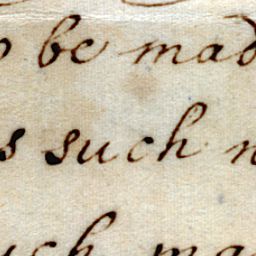 be mad
s such n
uch ma